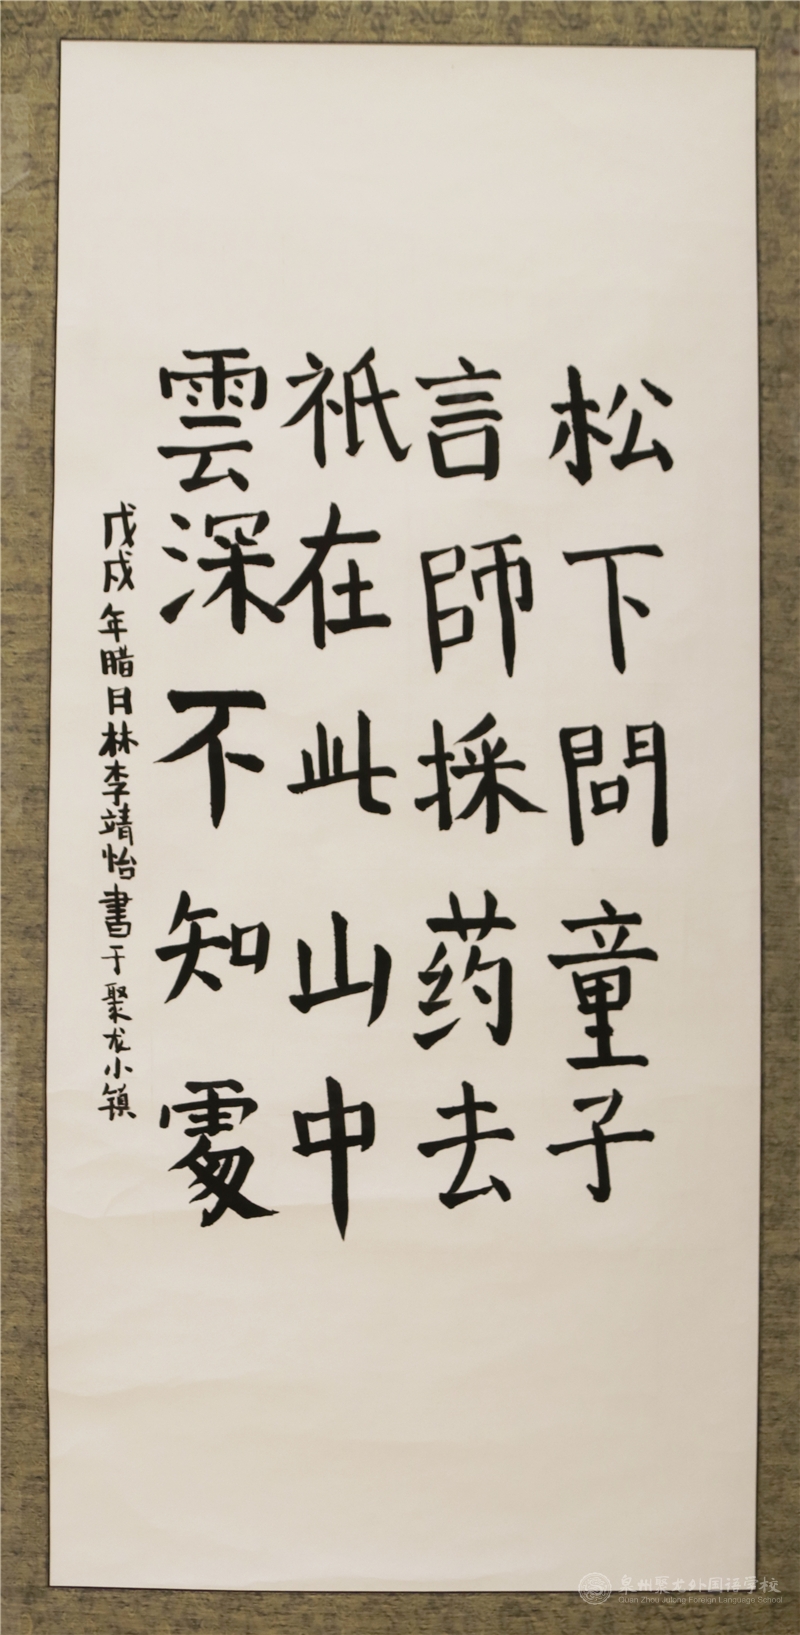 松下問童子
言師採药去
祇在此山中
雲深不知處
戊戌年腊月林李靖怡書于聚龙小镇
泉州聚龙外国语学校
Quan Zhou Julong Foreign Language School